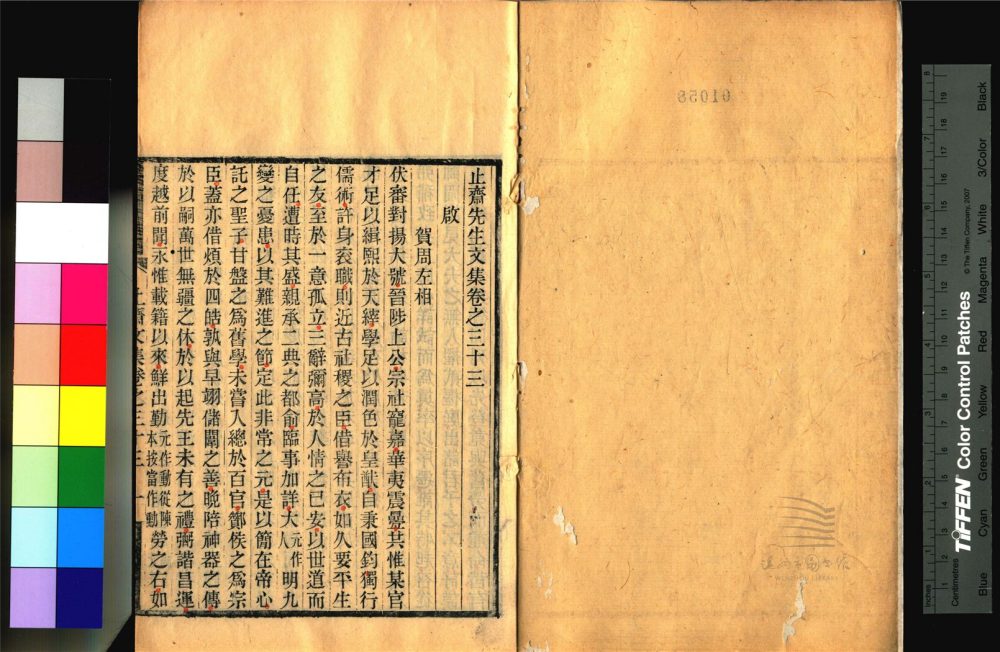 止齋先生文集卷之三十三
啟
賀周左相
伏審對揚大號晉陟上公宗社寵嘉華夷震疊共惟某官
才足以緝熙於天縡學足以潤色於皇猷自秉國鈞獨行
儒術許身袞職則近古社稷之臣借譽布衣如久要平生
之友至於一意孤立三辭彌高於人情之已安以世道而
自任遭時其盛親承二典之都俞臨事加詳大元作人明九
變之憂患以其難進之節定此非常之元是以簡在帝心
託之聖子甘盤之為舊學未嘗入總於百官鄼侯之為宗
臣蓋亦借煩於四皓孰與早翊儲闈之善晚陪神器之傳
於以嗣萬世無疆之休於以起先王未有之禮弼諧昌運
度越前聞永惟載籍以來鮮出勤元作動從陳本按當作勳勞之右如
止齋文集卷之三十三 一
01058
溫州市圖書館
WENZHOU LIBRARY
TIFFEN Color Control Patches
© The Tiffen Company, 2007
Inches
Centimetres
Blue
Cyan
Green
Yellow
Red
Magenta
White
3/Color
Black